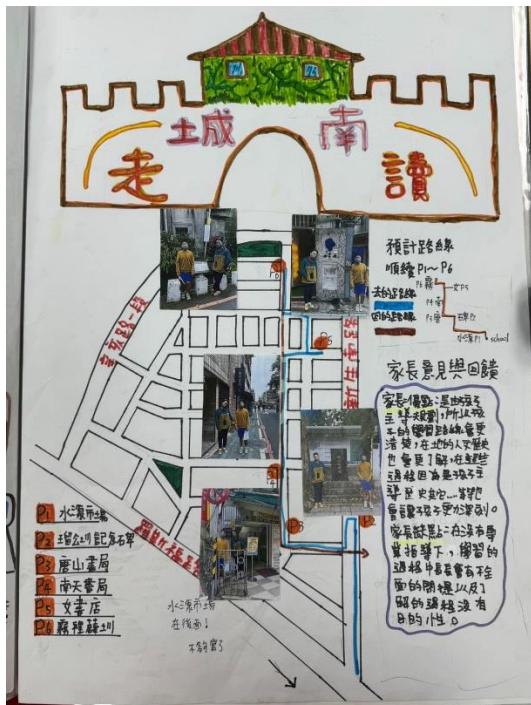 城南
走讀
預計路線
順續P1~P6
去的路線
回的路線
P6霧
女P5
P4南
P3唐
水漂P1
school
辛亥路一段
羅斯福
家長意見與回饋
家長優點:是由孩子
主導規劃,所以孩
子的學習路線會更
清楚,在地的人文歷史
也會更了解,在這些
過程因為是孩子主
導
會讓孩子更加深刻。
家長缺點:在沒有專
業指導下,學習的
過程中長會有不全
面的問提以及了
解的過程沒有
目的性。
P1 水漂市場
P2 瑠公圳記念石碑
P3 唐山書局
P4 南天書局
P5 女書店
P6 霧裡薛圳
水漂市場
在後面!
不夠會了